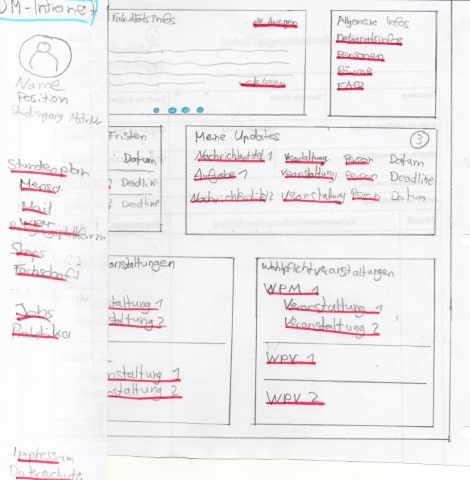 DM-Intranet
Name
Position
Studiengang
Stundenplan
Mensa
Mail
Shops
Fachschaft
Jobs
Praktika
Impressum
Datenschutz
Fakultätsinfos
alle Anzeigen
weiterlesen
Allgemeine Infos
Dekanatsinfos
Personen
Räume
FAQ
Fristen
Datum
Deadline
Deadline
Meine Updates
3
Nachrichtentitel 1 Veranstaltung Person Datum
Aufgabe 1 Veranstaltung Person Deadline
Nachrichtentitel 2 Veranstaltung Person Datum
anstaltungen
taltung 1
staltung 2
nstaltung 1
staltung 2
Wahlpflichtveranstaltungen
WPM 1
Veranstaltung 1
Veranstaltung 2
WPV 1
WPV 2